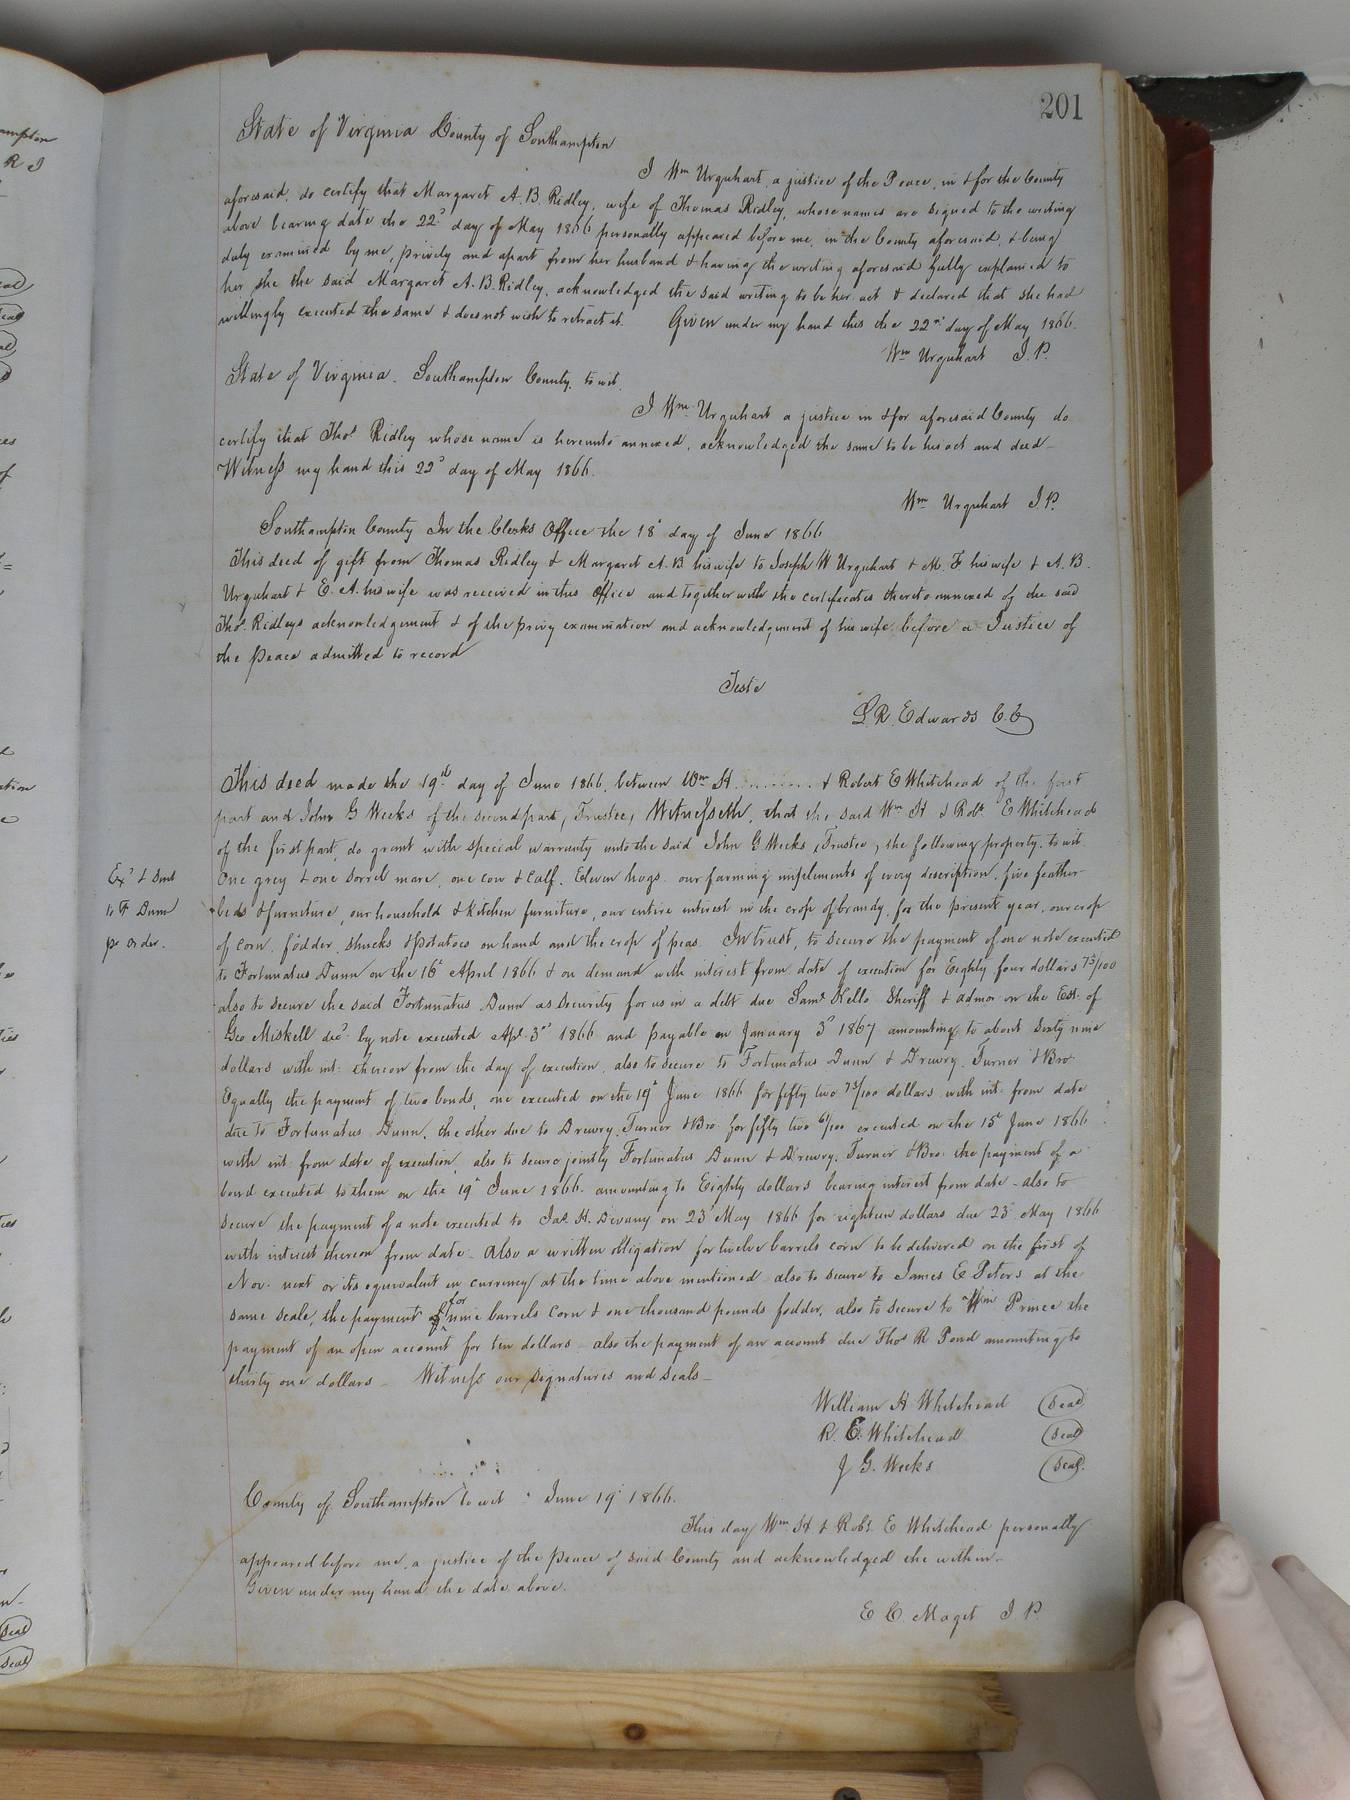 201
State of Virginia County of Southampton
I Wm Urquhart, a justice of the Peace, in & for the County
aforesaid, do certify that Margaret A. B. Ridley, wife of Thomas Ridley, whose names are signed to the writing
above bearing date the 22d day of May 1866 personally appeared before me, in the County aforesaid, & being
duly examined by me, privily and apart from her husband & having the writing aforesaid fully explained to
her she the said Margaret A. B. Ridley, acknowledged the said writing to be her act & declared that she had
willingly executed the same & does not wish to retract it. Given under my hand this the 22nd day of May 1866.
Wm Urquhart J. P.
State of Virginia. Southampton County. to wit.
I Wm Urquhart a justice in & for aforesaid County do
certify that Thos Ridley whose name is hereunto annexed, acknowledged the same to be his act and deed—
Witness my hand this 22d day of May 1866.
Wm Urquhart J. P.
Southampton County In the Clerks Office the 18th day of June 1866
This deed of gift from Thomas Ridley & Margaret A. B his wife to Joseph W Urquhart & M. F his wife & A. B.
Urquhart & E. A. his wife was received in this Office and together with the certificates thereto annexed of the said
Thos Ridleys acknowledgement & of the privy examination and acknowledgement of his wife before a Justice of
the Peace admitted to record
Teste
L. R. Edwards C. C
This deed made the 19th day of June 1866. between Wm H. ......... & Robert E Whitehead of the first
part and John G Weeks of the second part, Trustee, Witnesseth, that the said Wm H & Robt E Whitehead
of the first part, do grant with special warranty unto the said John G Weeks, Trustee, the following property. to wit
One grey & one sorrel mare, one cow & calf. Eleven hogs. our farming implements of every description. five feather
Exd & Sent
to F Dunn
pr order.
beds & furniture, our household & kitchen furniture, our entire interest in the crop of brandy, for the present year, our crop
of corn, fodder, shucks & potatoes on hand and the crop of peas. In trust, to secure the payment of one note executed
to Fortunatus Dunn on the 16th April 1866 & on demand with interest from date of execution for Eighty four dollars 75/100
also to secure the said Fortunatus Dunn as security for us in a debt due Saml Kello Sheriff & admor on the Est. of
Geo Miskell decd by note executed Apl 3rd 1866 and payable on January 3d 1867 amounting to about Sixty nine
dollars with int: thereon from the day of execution, also to secure to Fortunatus Dunn & Drewry, Turner & Bro.
Equally the payment of two bonds, one executed on the 19th June 1866 for fifty two 75/100 dollars with int. from date
due to Fortunatus Dunn, the other due to Drewry, Turner & Bro for fifty two 61/100 executed on the 15th June 1866
with int. from date of execution, also to secure jointly Fortunatus Dunn & Drewry, Turner & Bro: the payment of a
bond executed to them on the 19th June 1866. amounting to Eighty dollars bearing interest from date - also to
secure the payment of a note executed to Jas. H. Devany on 23d May 1866 for eighteen dollars due 23d May 1866
with interest thereon from date. Also a written obligation for twelve barrels corn to be delivered on the first of
Nov. next or its equivalent in currency at the time above mentioned also to secure to James E Peters at the
same scale, the payment for nine barrels corn & one thousand pounds fodder, also to secure to Wm Prince the
payment of an open account for ten dollars also the payment of an account due Thos R Pond amounting to
thirty one dollars — Witness our signatures and seals —
William H Whitehead (Seal)
R. E. Whitehead (Seal)
J G. Weeks (Seal)
County of Southampton to wit : June 19th 1866.
This day Wm H. & Robt. E Whitehead personally
appeared before me, a justice of the peace of said County and acknowledged the within—
Given under my hand the date above.
E C. Maget J P.